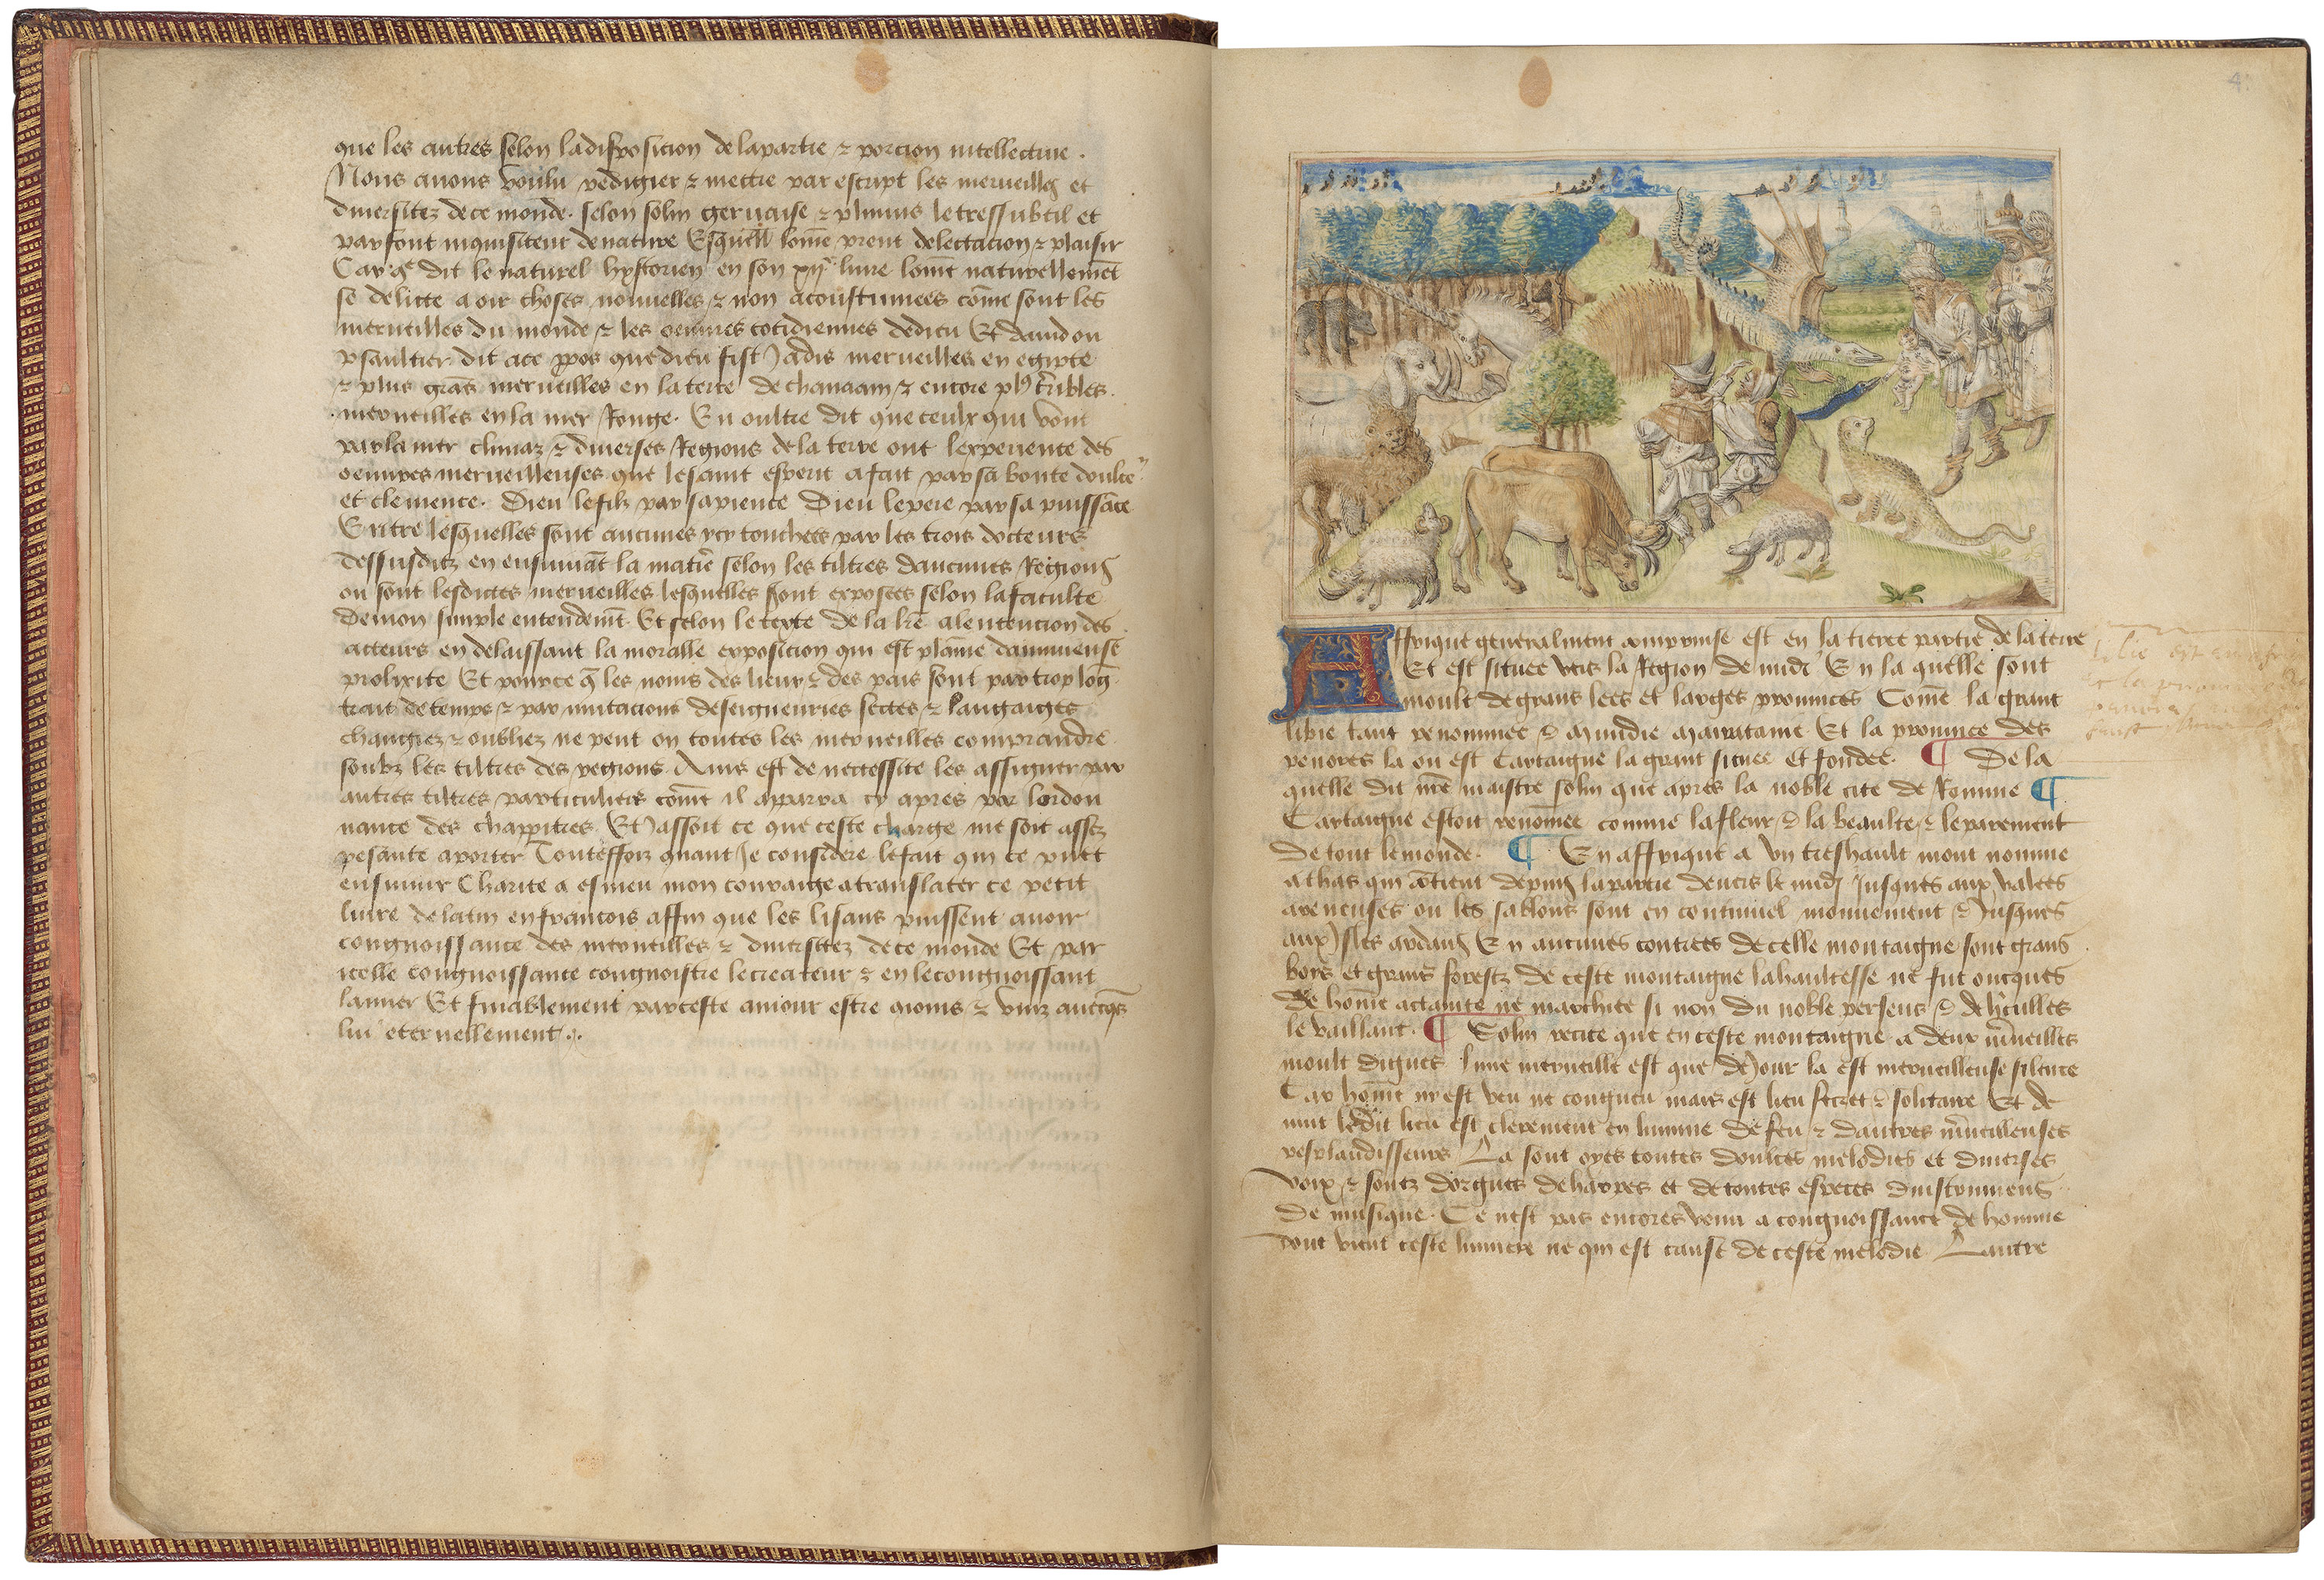 que les autres selon la disposicion de la partie & porcion intellectiue .
Nous auons voulu rediger & mettre par escript les merueilles et
diuersitez de ce monde . selon solin geruaise & plinius le tressubtil et
parfont inquisiteur de nature Esquelles lome prent delectacion & plaisir
Car dit le naturel hystorien en son liure lome naturellement
se delicte a oir choses nouuelles & non acoustumees come sont les
merueilles du monde & les oeuures cotidiennes de dieu Et dauid ou
psaultier dit a ce ppos que dieu fist Jadis merueilles en egipte
& plus grans merueilles en la terre de chanaam & encore terribles .
merueilles en la mer Rouge . En oultre dit que ceulx qui vont
par la mer climaz & diuerses Regions de la terre ont lexperience des
oeuures merueilleuses que le saint esperit a fait par sa bonte doulce
et clemence . Dieu le filz par sapience Dieu le pere par sa puissace
Entre lesquelles sont aucunes ycy touchees par les trois docteurs
dessusditz en ensuiuat la matiere selon les tiltres daucunes Regions
ou sont lesdictes merueilles lesquelles sont exposees selon la faculte
de mon simple entendement Et selon le texte de la lre a lentencion des
acteurs en delaissant la moralle exposicion qui est plaine dainmense
prolixite Et pource q les noms des lieux & des pais sont par trop long
trait de temps & par mutacions de seigneuries sectes & langaiges
changiez & oubliez ne peut on toutes les merueilles comprandre
soubz les tiltres des regions Ains est de necessite les assigner par
autres tiltres particuliers come il aparra cy apres par lordon
nance des chappitres Et Jassoit ce que ceste charge me soit assez
pesante a porter Touteffoiz quant Je considere le fait qui ce puet
ensuiuir Charite a esmeu mon couraige a translater ce petit
liure de latin en francois affin que les lisans puissent auoir
congnoissance des merueilles & diuersitez de ce monde Et par
icelle congnoissance congnoistre le createur & en le congnoissant
lamer Et finablement par ceste amour estre & vniz auecqs
lui eternellement .
Affrique generalment comprinse est en la tierce partie de la terre
Et est situee vers la Region de midi En la quelle sont
moult de grans lees et larges prouinces Come la grant
libie tant renommee & Mauritame Et la prouince des
penores la ou est Cartaigne la grant situee et fondee . ¶ De la
quelle dit nre maistre solin que apres la noble cite de Romme ¶
Cartaigne estoit renomee comme la fleur & la beaulte & le parement
de tout le monde . ¶ En affrique a vn treshault mont nomme
athas qui cotient depuis la partie deuers le midi Jusques aux valees
areneuses ou les sablons sont en continuel mouuement & Jusques
aux Isles ardans En aucunes contrees de celle montaigne sont grans
bois et grans forestz de ceste montaigne la haultesse ne fut oncques
de home actainte ne marchee si non du noble perseus & de hculles
le vaillant . ¶ Solin recite que en ceste montaigne a deux merueilles
moult dignes lune merueille est que de Jour la est merueilleuse silence
Car home ny est veu ne congneu mais est lieu secret & solitaire Et de
nuit le dit lieu est clerement en lumine de feu & dautres merueilleuses
resplandisseurs La sont oyes toutes doulces melodies et diuerses
voix & sons dorgues de harpes et de toutes especes dinstrumens
de musique . Ce nest pas encores venu a congnoissance de homme
dont vient ceste lumiere ne qui est cause de ceste melodie Lautre